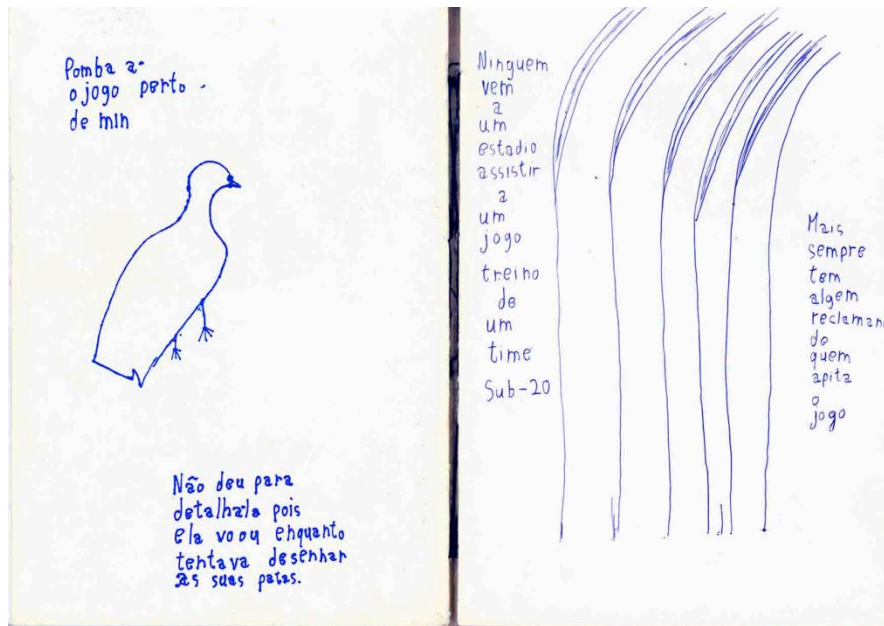 Pomba a-
o jogo perto
de min
Não deu para
detalha-la pois
ela voou enquanto
tentava desenhar
as suas patas.
Ninguem
vem
a
um
estadio
assistir
a
um
jogo
treino
de
um
time
Sub-20
Mais
sempre
tem
algem
reclaman
do
quem
apita
o
jogo